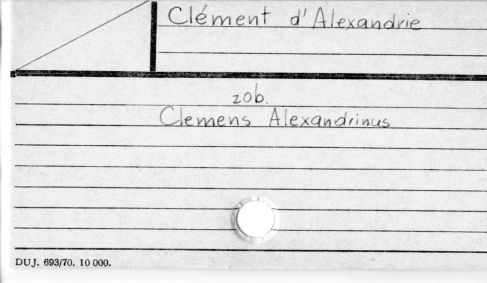 Clément d'Alexandrie
zob.
Clemens Alexandrinus
DUJ. 693/70. 10 000.